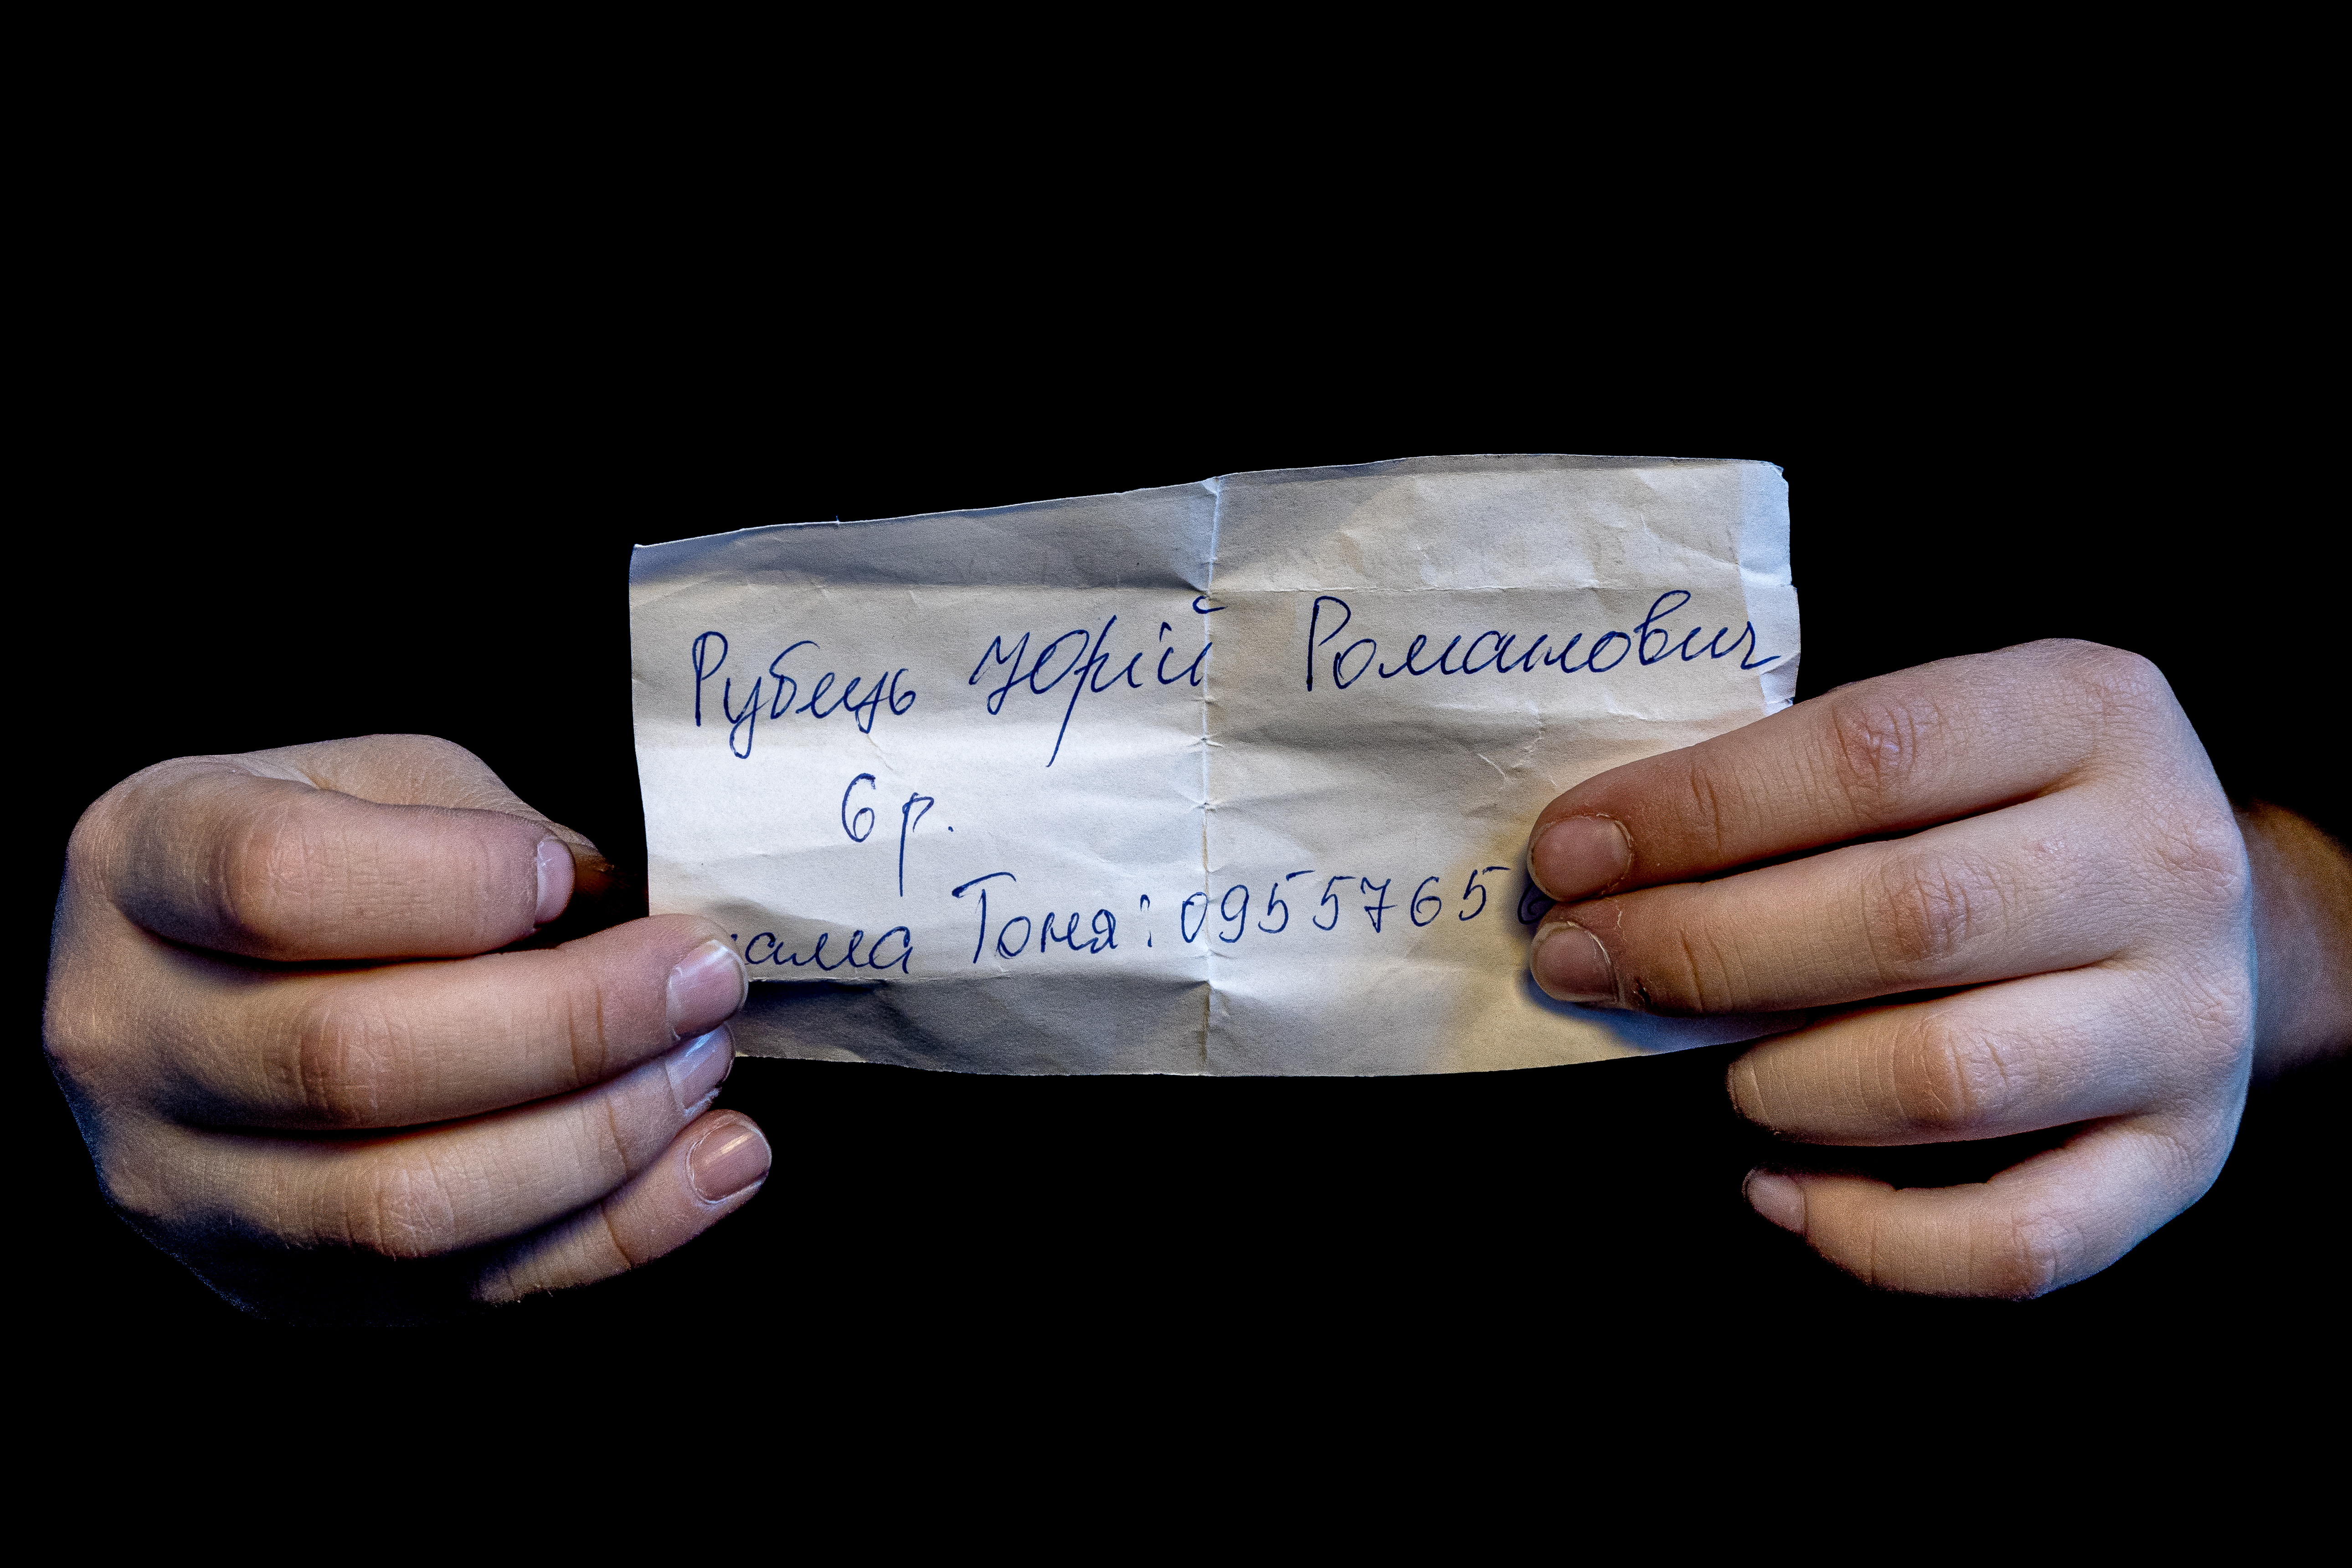 Рубець Юрій Романович
6 р.
мама Тоня: 09557656